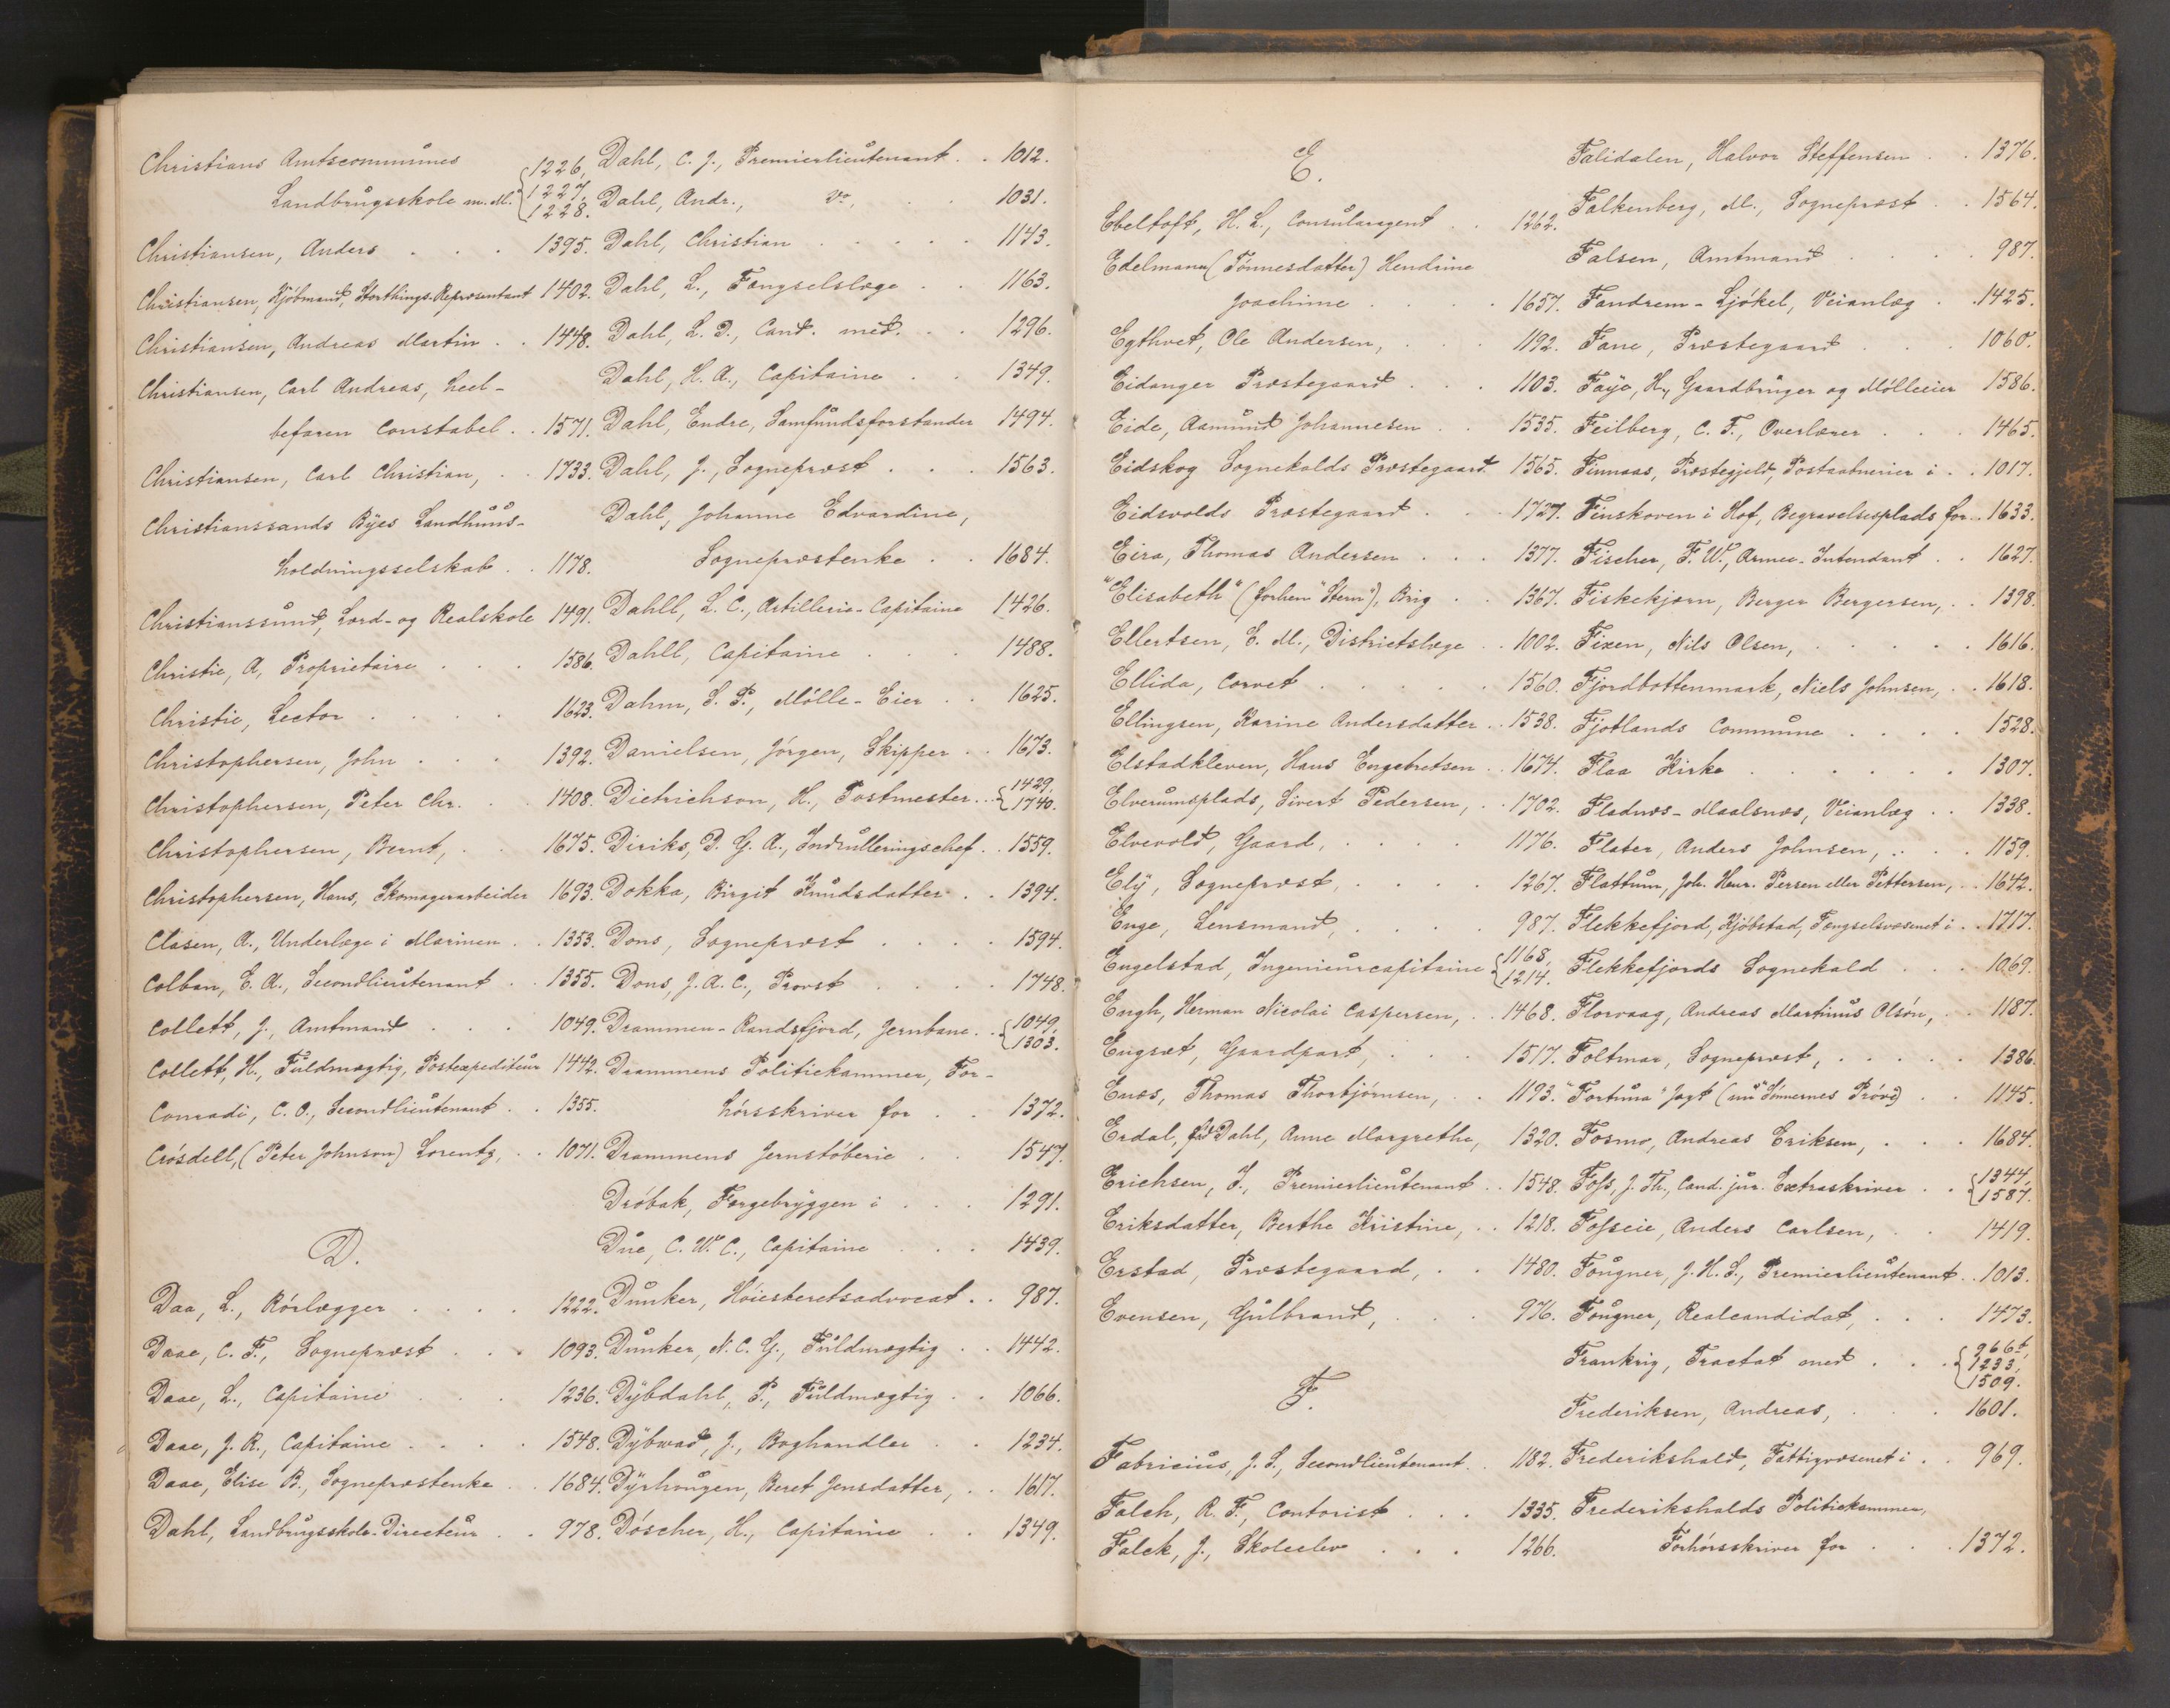 Christians Amtscommunes
Landbrugsskole m. M. {1226, 1227, 1228.
Christiansen, Anders . . . 1395.
Christiansen, Kjöbmand, Storthings-Repræsentant 1402.
Christiansen, Andreas Martin . . 1448.
Christiansen, Carl Andreas, heel-
befaren Constabel . . 1571.
Christiansen, Carl Christian, . . 1733.
Christianssands Byes Landhuus-
holdningsselskab . . 1178.
Christianssund, Lærd- og Realskole 1491.
Christie, A, Proprietaire . . . 1586.
Christie, Lector . . . . 1623.
Christophersen, John . . . 1392.
Christophersen, Peter Chr. . . 1408.
Christophersen, Bernt, . . 1675.
Christophersen, Hans, Skomagerarbeider 1693.
Clasen, A., Underlæge i Marinen . . 1353.
Colban, E. A., Secondlieutenant . . 1355.
Collett, J., Amtmand . . . 1049.
Collett, H., Fuldmægtig, Postexpediteur 1442.
Conradi, C. O., Secondlieutenant . . 1355.
Crösdell, (Peter Johnson) Lorentz, . . 1071.
D.
Daa, L., Rörlægger . . . . 1222.
Daae, C. F., Sogneprest . . . 1093.
Daae, L., Capitaine . . . 1236.
Daae, J. R., Capitaine . . . . 1548.
Daae, Elise B., Sogneprestenke . . 1684.
Dahl, Landbrugsskole-Directeur . . 978.
Dahl, C. J., Premierlieutenant . . 1012.
Dahl, Andr., do, . . 1031.
Dahl, Christian . . . . . 1143.
Dahl, L., Fængselslæge . . 1163.
Dahl, L. D., Cand. med. . . 1296.
Dahl, H. A., Capitaine . . 1349.
Dahl, Endre, Samfundsforstander 1494.
Dahl, J., Sogneprest . . . 1563.
Dahl, Johanne Edvardine,
Sogneprestenke . . 1684.
Dahll, L. C., Artillerie-Capitaine 1426.
Dahll, Capitaine . . . 1488.
Dahm, S. P., Mölle-Eier . . 1625.
Danielsen, Jörgen, Skipper . . 1673.
Dietrichson, H., Postmester . . {1429, 1740.
Diriks, D. G. A., Indrulleringschef . . 1559.
Dokka, Birgit Knudsdatter . . 1394.
Dons, Sogneprest . . . . 1594.
Dons, J. A. C., Provst . . . . 1748.
Drammen-Randsfjord, Jernbane . . {1049, 1303.
Drammens Politiekammer, For-
hörsskriver for . . 1372.
Drammens Jernstöberie . . 1547.
Dröbak, Færgebryggen i . . . 1291.
Due, C. W. C., Capitaine . . . 1439.
Dunker, Höiesteretsadvocat . . 987.
Dunker, N. C. G., Fuldmægtig . . 1442.
Dybdahl, P., Fuldmægtig . . 1066.
Dybwad, J., Boghandler . . 1234.
Dyrhougen, Beret Jensdatter, . . 1617.
Döscher, H., Capitaine . . 1349.
E.
Ebeltoft, H. L., Consularagent . . 1262.
Edelmann (Tönnesdatter) Hendrine
Joachime . . . . 1657.
Egthvet, Ole Andersen, . . . 1192.
Eidanger Præstegaard . . . 1103.
Eide, Aamund Johannesen . . 1535.
Eidskog Sognekalds Præstegaard 1565.
Eidsvolds Præstegaard . . . 1727.
Eira, Thomas Andersen . . . 1377.
"Elisabeth" (forhen "Stern"), Brig . . 1367.
Ellertsen, E. M., Districtslæge . . 1002.
Ellida, Corvet . . . . . 1560.
Ellingsen, Karine Andersdatter . . 1538.
Elstadkleven, Hans Engebretsen . . 1674.
Elverumsplads, Sivert Pedersen, . . 1702.
Elvevold, Gaard, . . . . 1176.
Ely, Sogneprest, . . . . 1267.
Enge, Lensmand, . . . . 987.
Engelstad, Ingenieurcapitaine {1168, 1214.
Engh, Herman Nicolai Caspersen, . . 1468.
Engset, Gaardpart, . . . 1517.
Enæs, Thomas Thorbjörnsen, . . 1193.
Erdal, föd Dahl, Anne Margrethe, 1320.
Erichsen, J., Premierlieutenant . . 1548.
Eriksdatter, Berthe Kristine, . . 1218.
Erstad, Præstegaard, . . 1480.
Evensen, Gulbrand, . . . 976.
F.
Fabricius, J. S., Secondlieutenant . . 1182.
Falch, R. F., Contorist . . . 1335.
Falck, J., Skoleelev . . . 1266.
Falidalen, Halvor Steffensen . . 1376.
Falkenberg, M., Sogneprest . . 1564.
Falsen, Amtmand . . . . 987.
Fandrem-Ljökel, Veianlæg . . 1425.
Fane, Præstegaard . . . 1060.
Faye, H., Gaardbruger og Mölleeier 1586.
Feilberg, C. F., Overlærer . . . 1465.
Finnaas, Præstegjeld, Postaabnerier i . . 1017.
Finskoven i Hof, Begravelsesplads for . . 1633.
Fischer, F. W., Armee-Intendant . . 1627.
Fiskekjærn, Berger Bergersen, . . 1398.
Fixen, Nils Olsen, . . . . . 1616.
Fjordbottenmark, Niels Johnsen, . . 1618.
Fjotlands Commune . . . . 1528.
Flaa Kirke . . . . . . 1307.
Fladnæs-Maalsnæs, Veianlæg . . 1338.
Flater, Anders Johnsen, . . . 1159.
Flattum, Joh. Henr. Persen eller Pettersen, . . 1642.
Flekkefjord, Kjöbstad, Fængselsvæsenet i . . 1717.
Flekkefjords Sognekald . . . 1069.
Florvaag, Andreas Martinus Olsön, . . 1187.
Foltmar, Sogneprest, . . . . . 1386.
"Fortuna" Jagt (nu "Sönnernes Pröve) . . 1145.
Fosmo, Andreas Eriksen, . . . 1684.
Foss, J. Th., Cand. jur. Extraskriver . . {1344, 1587.
Fosseie, Anders Carlsen, . . 1419.
Fougner, J. H. S., Premierlieutenant . . 1013.
Fougner, Realcandidat, . . . 1473.
Frankrig, Tractat med . . . {966½, 1233, 1509.
Frederiksen, Andreas, . . . 1601.
Frederikshald, Fattigvæsenet i . . 969.
Frederikshalds Politiekammer,
Forhörsskriver for . . . 1372.